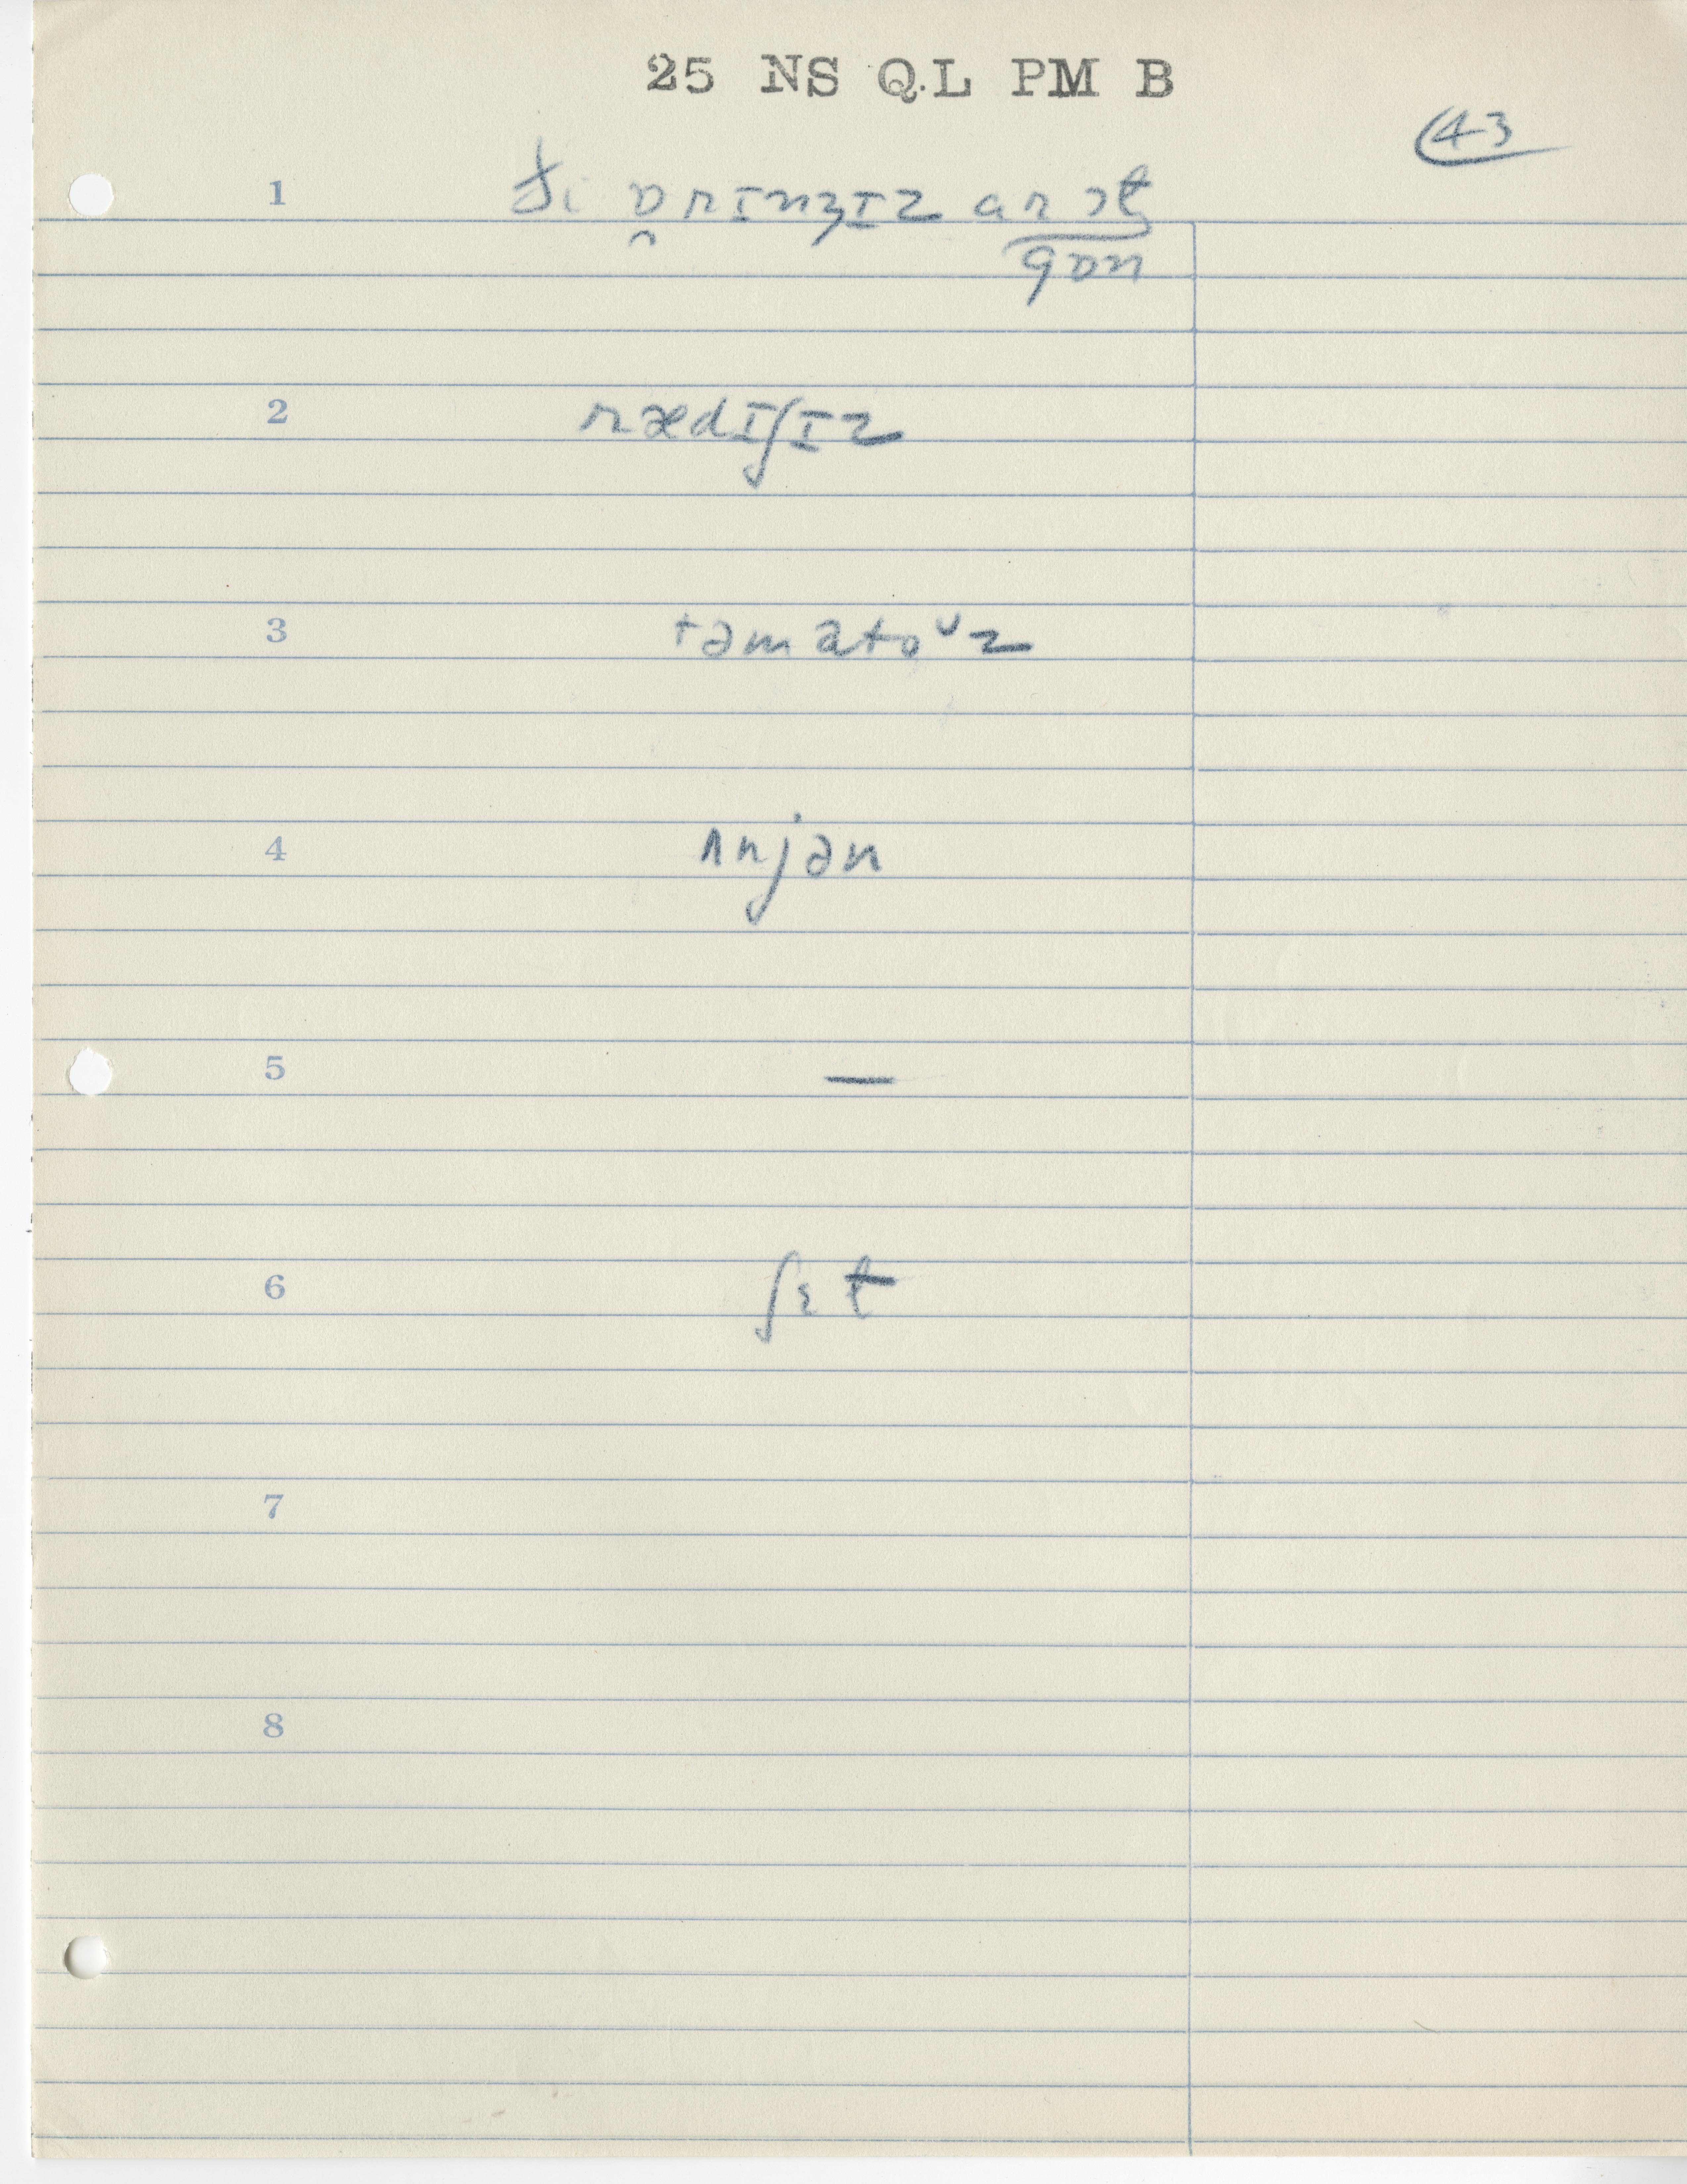 25 NS Q.L PM B
43
1 ði ɒ̯rɪnʒɪz ar ɔt
gɒn
2 rædɪʃɪz
3 təmatoᶷz
4 ʌnjən
5 —
6 ʃɛt
7
8